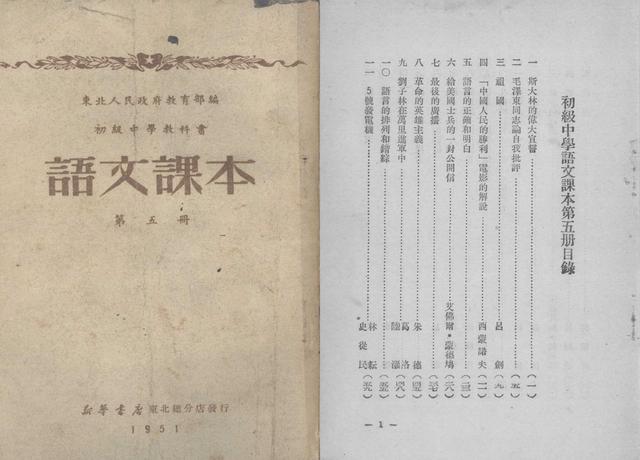 東北人民政府教育部編
初級中學教科書
語文課本
第五册
新華書店東北總分店發行
1951
初級中學語文課本第五册目錄
一 斯大林的偉大宣誓……(一)
二 毛澤東同志論自我批評……(五)
三 祖國……呂劍(九)
四 「中國人民的勝利」電影的解說……西蒙諾夫(一一)
五 語言的正確和明白……
六 給美國士兵的一封公開信……艾佛爾·蒙德塢(二八)
七 最後的廣播……
八 革命的英雄主義……朱德
九 劉子林在萬里進軍中……葛洛
一〇 語言的排列和錯綜……
一一 5號發電機……林耘 史從民
— 1 —